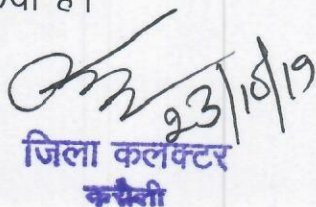 है।
23/10/19
जिला कलक्टर
करौली